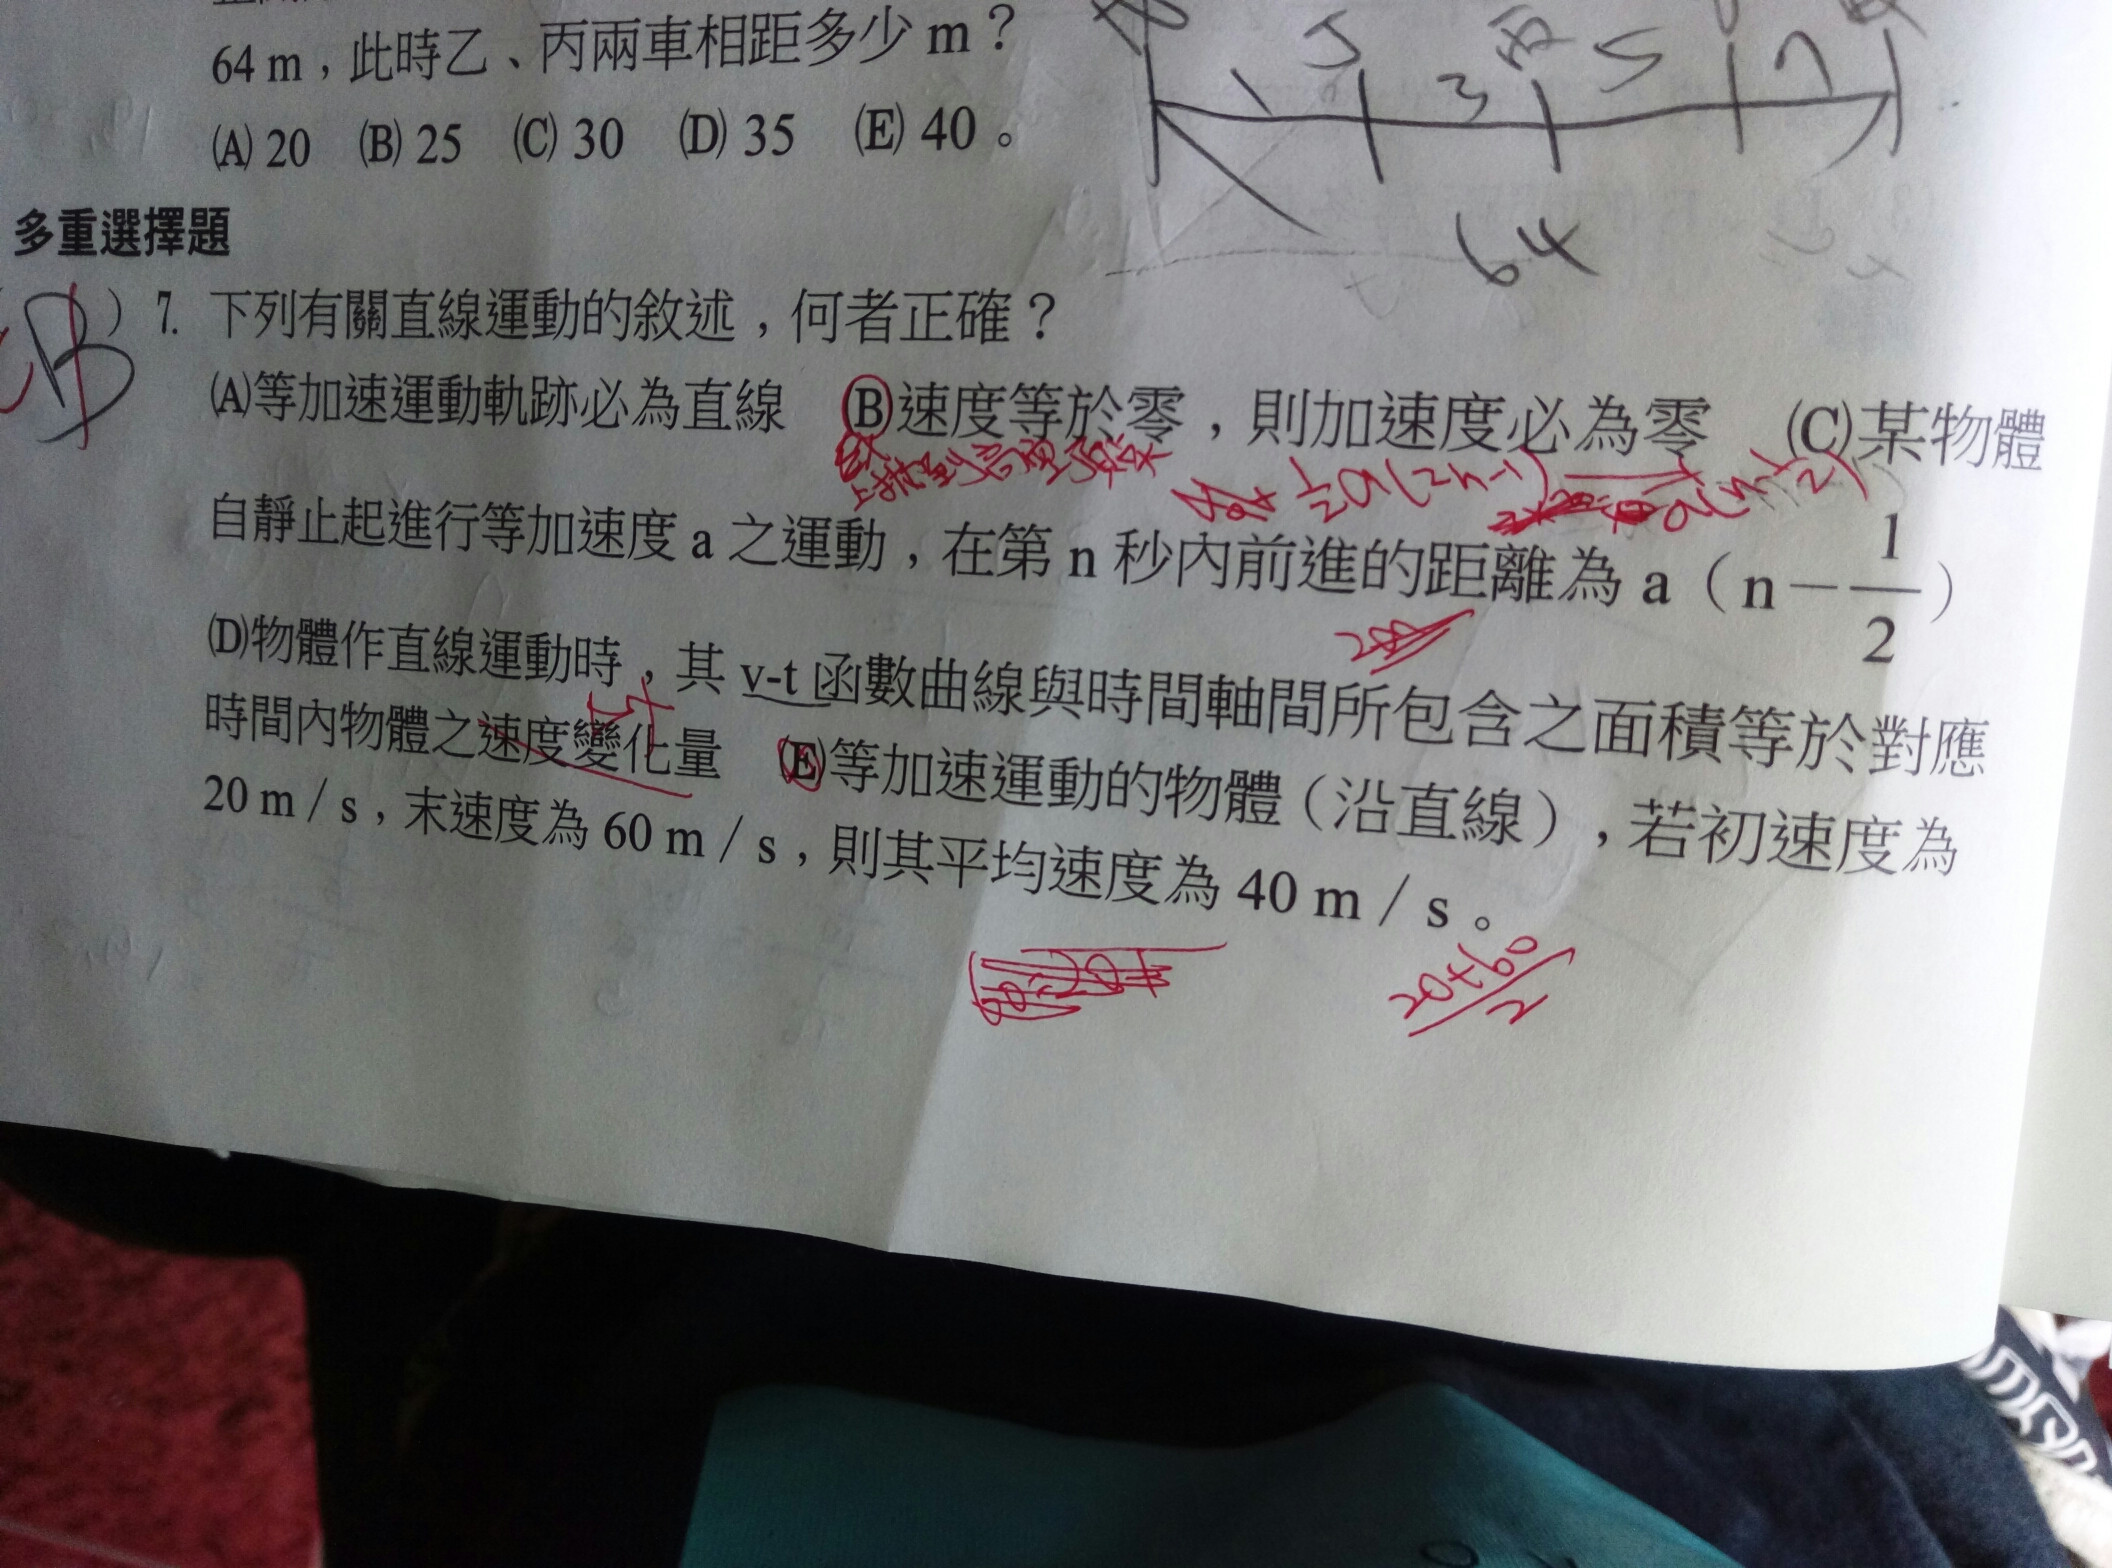 64 m，此時乙、丙兩車相距多少 m？
(A) 20 (B) 25 (C) 30 (D) 35 (E) 40。
1 3 5 7
64
多重選擇題
B ) 7. 下列有關直線運動的敘述，何者正確？
(A)等加速運動軌跡必為直線 (B)速度等於零，則加速度必為零 (C)某物體
上拋到最高
½a(2n-1) a(n-½)
自靜止起進行等加速度 a 之運動，在第 n 秒內前進的距離為 a（n－1/2）
(D)物體作直線運動時，其 v-t 函數曲線與時間軸間所包含之面積等於對應
時間內物體之速度變化量 (E)等加速運動的物體（沿直線），若初速度為
20 m／s，末速度為 60 m／s，則其平均速度為 40 m／s。
20+60
2